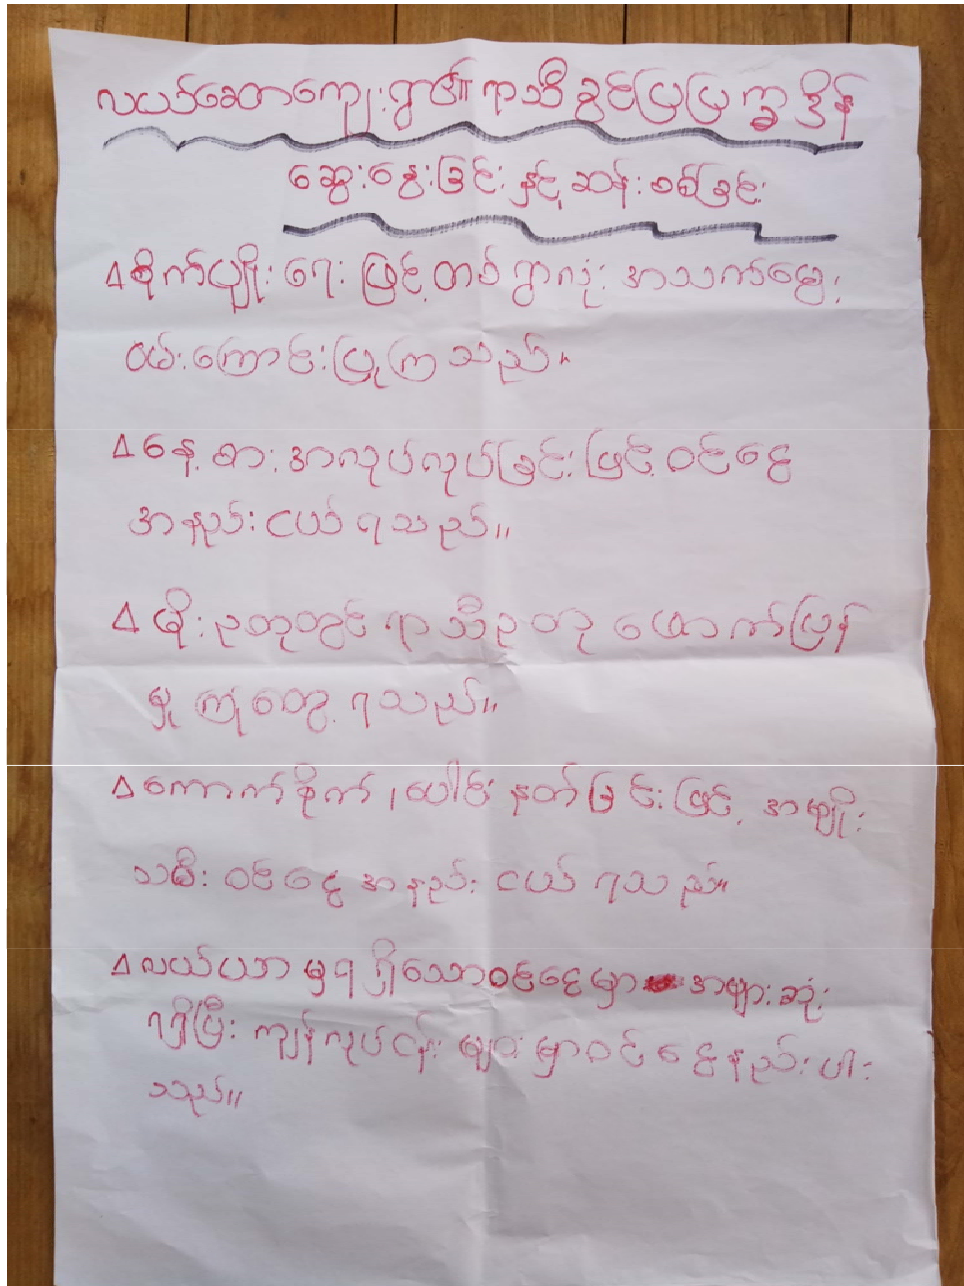 လယ်တောကျေးရွာ၏ ရာသီခွင်ပြပြက္ခဒိန်
ဆွေးနွေးခြင်း နှင့် ဆန်းစစ်ခြင်း
Δ စိုက်ပျိုးရေး ဖြင့် တစ်ရွာလုံး အသက်မွေး
ဝမ်းကြောင်းပြုကြသည်။
Δ နေ့စားအလုပ်လုပ်ခြင်းဖြင့် ဝင်ငွေ
အနည်းငယ် ရသည်။
Δ မိုးဥတုတွင် ရာသီဥတု ဖောက်ပြန်
မှု ကြုံတွေ့ ရသည်။
Δ ကောက်စိုက်၊ ပေါင်းနုတ်ခြင်းဖြင့် အမျိုး
သမီး ဝင်ငွေ အနည်းငယ် ရသည်။
Δ လယ်ယာမှ ရရှိသောဝင်ငွေမှာ အများဆုံး
ရရှိပြီး ကျန်လုပ်ငန်းများမှာ ဝင်ငွေနည်းပါး
သည်။